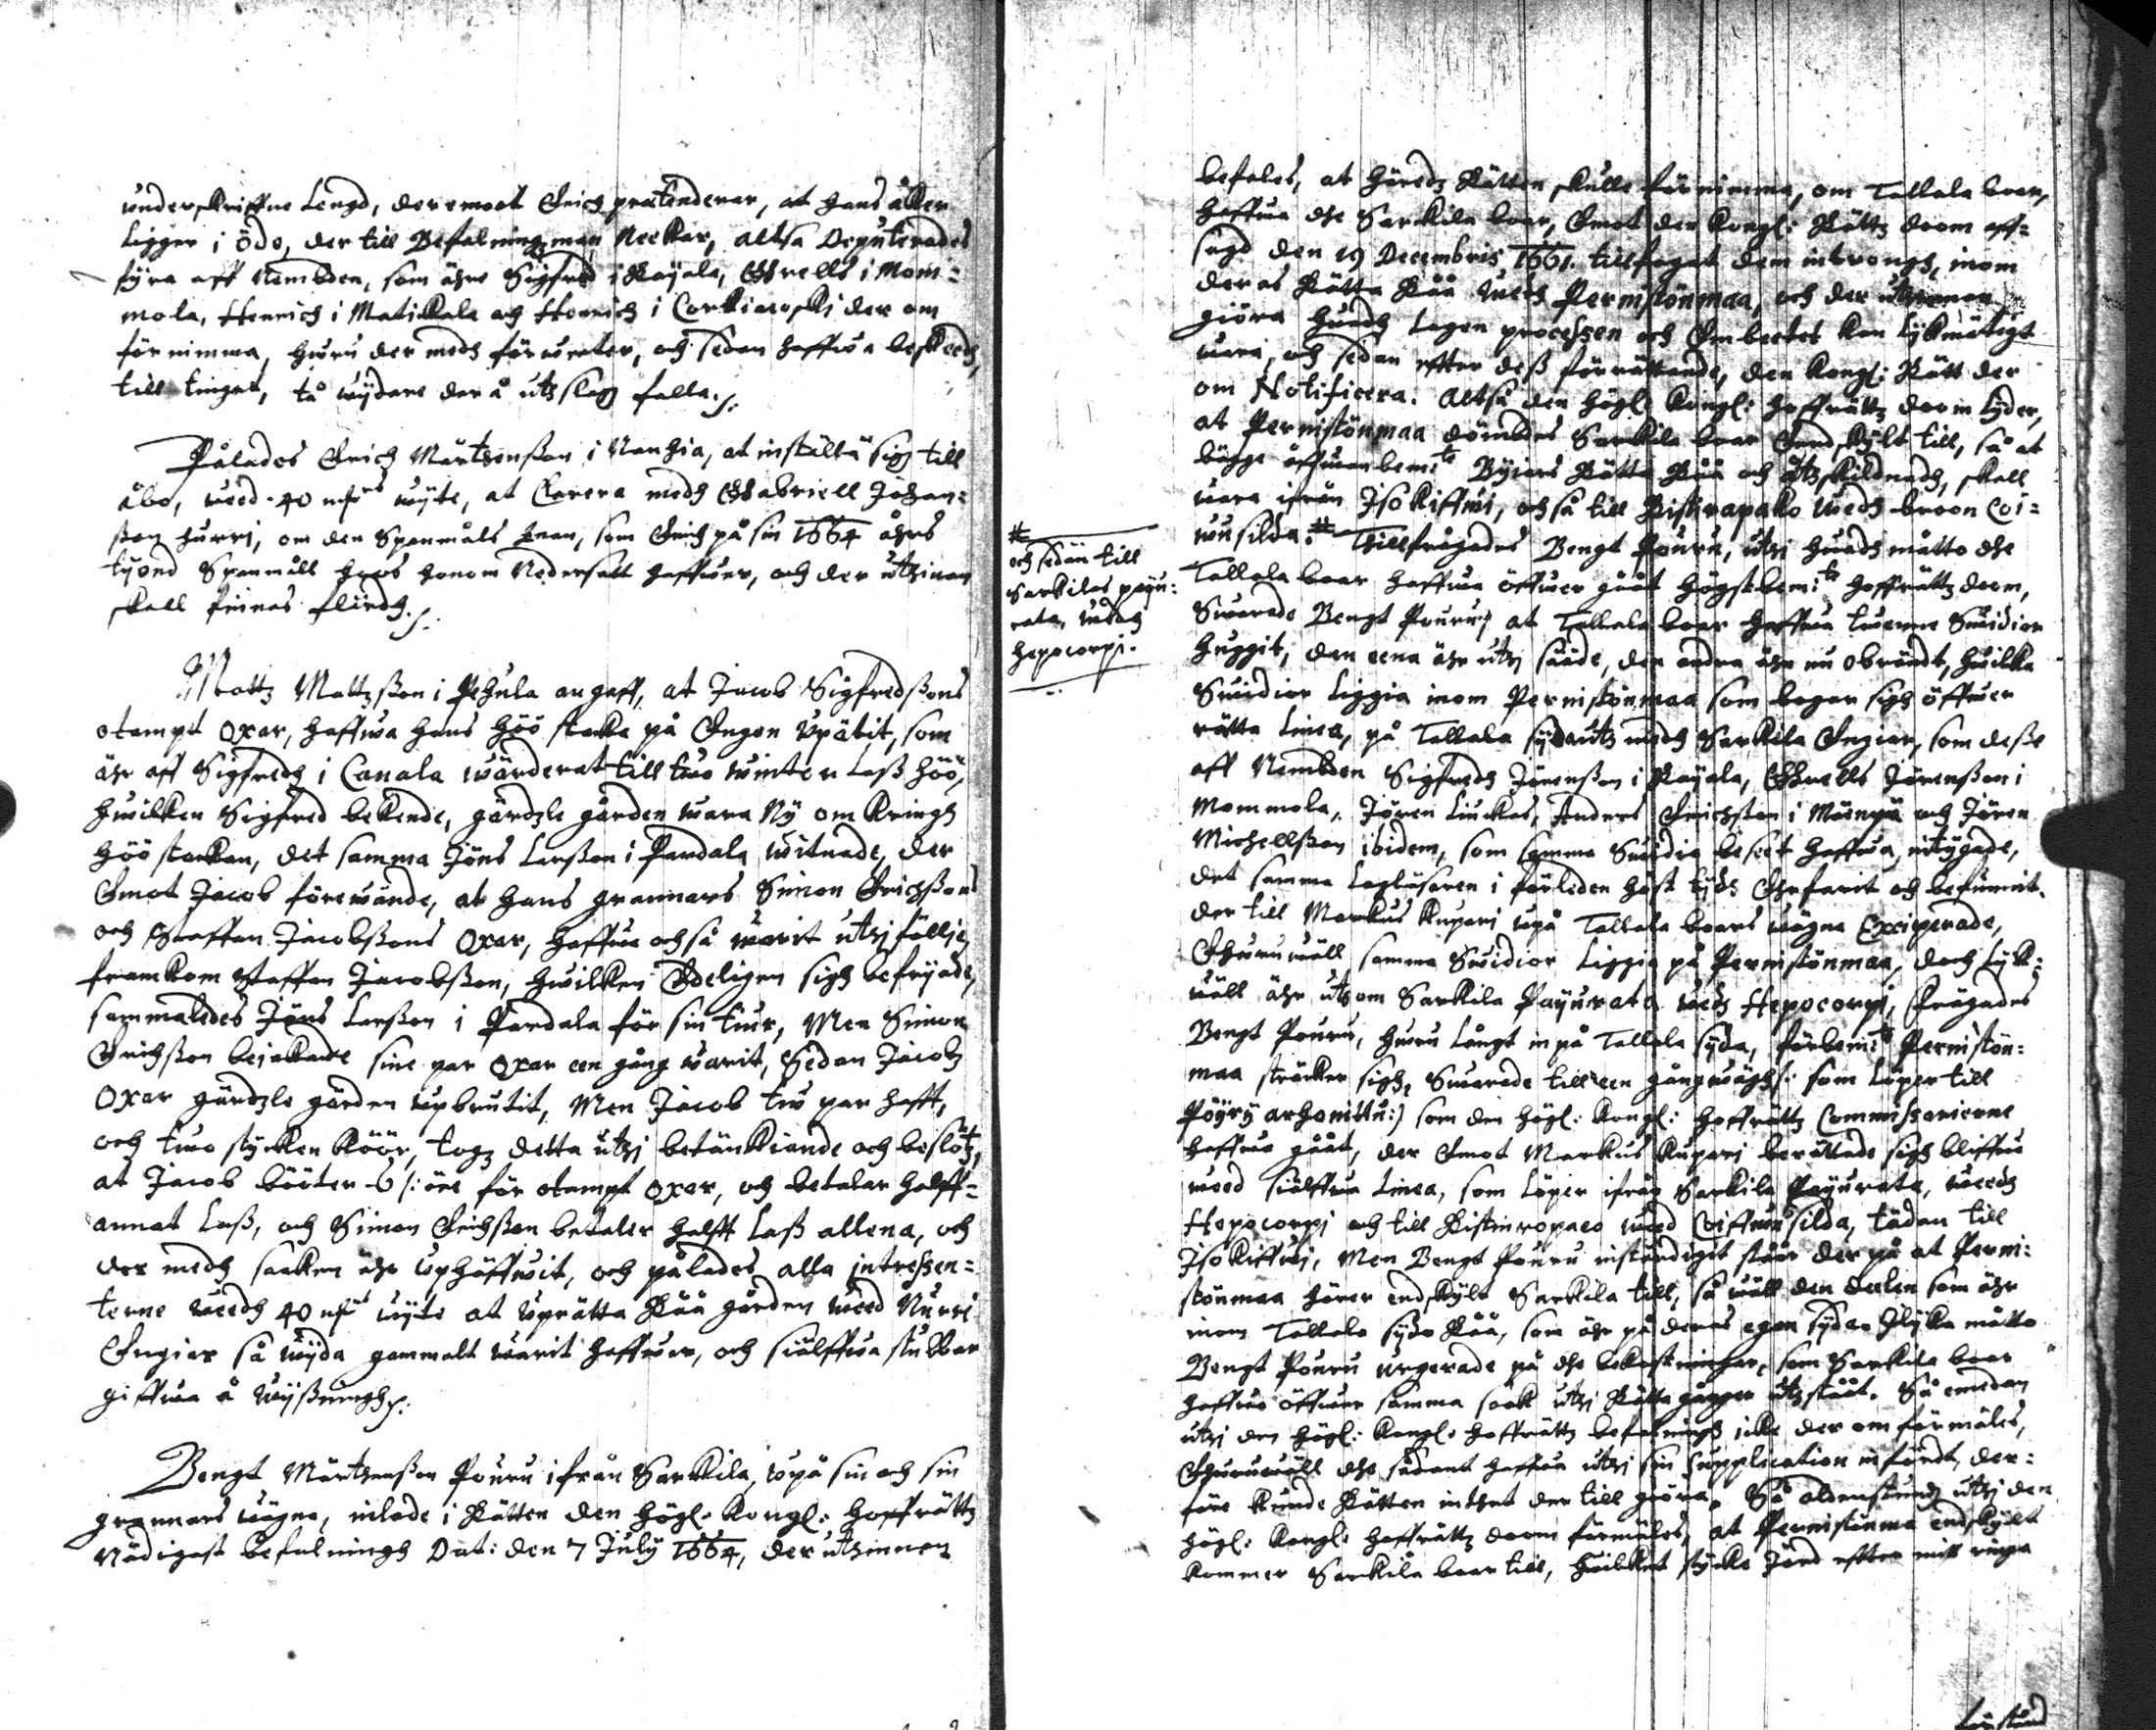 underskriffne Lengd, deremoot Erich prætenderar, at hans åker
ligger i öde, der till Befalningzman Neckar, altså Deputerades
fyra aff Nembden, som ähre Sigfred i Rayala, Grells i Mom-
mola, Henrich i Matickala och Henrich i Corkianoski der om
förnimma, huru der medh förweter, och sedan haffwa beskeedh
till tinget, tå wijdare der å utslag falla./:
Pålades Erich Mårtensson i Nanhia, at inställa sig till
Åbo, weed 40 mks wijte, at Clarera medh Gabriell Johan-
sson Hurri, om den Spanmåls , som Erich på sin 1664 åhrs
tijond Spanmåll hoos honom Nedersatt haffwer, och der uthinnan
skall finnas flijtigh./:
Mattz Mattzsson i Pehula angaff, at Jacob Sigfredssons
otampt Oxar, haffwa hans höö stacka på Engen Upätit, som
ähr aff Sigfredh i Canala wärderat till twå winter Lass höö,
hwilken Sigfred bekende, gärdzle gården wara Ny omkringh
höö stacken, det samma Jöns Larsson i Pardala witnade, der
Emot Jacob förewände, at hans grannars Simon Erichssons
och Staffan Jacobssons Oxar, haffwa och så warit uthi föllje,
framkom Staffan Jacobsson, hwilken Edeligen sigh befrijade,
sammaledes Jöns Larsson i Pardala för sin tiur, Men Simon
Erichsson bejakade sine par Oxar een gång warit, Sedan Jacobz
Oxar gärdzle gården upbrutit, Men Jacob tw par hafft,
och twå stycken Köör, togz detta uthi betänkiande och beslötz,
at Jacob bööter 6 /: öre för otampt Oxar, och betalar halff-
annat Lass, och Simon Erichsson betaler halfft Lass allena, och
der medh saaken ähr Uphäffwit, och pålades alla intressen-
terne weedh 40 mks wijte at Uprätta Råå gården weed Nurri
Engier så wijda gammalt warit haffwer, och siälffwa stubbar
giffwa å wijssningh/:
Bengt Mårtensson Pouru ifrån Sarkila, Upå sin och sin
grannars wägna, inlade i Rätten den högl. Kongl. Hoffrättz
Nådigast befalningh Dat: den 7 July 1664, der uthinnan
befales, at häredz Rätten skulle förnimma, om Tallala boar,
haffwa the Sarkila boar, Emot den Kongl: Rättz doom aff-
sagd den 19 Decembris 1661. tillfogat dem introngh, inom
deras Rätta Råå weedh Pernistönmaa, och der uthinnan
giöra hwadh Lagen processen och Embeetet kan Lijkmätigt
wara, och sedan effter dess förrättande, den Kongl: Rätt der
om Notificera. Altså den högl: Kongl: hoffrättz doom lyder,
at Pernistönmaa dömbdes Sarkila boar Enskylt till, så at
bägge offwanbem:te Byiars Rätta Råå och åtskildnadh, skall
wara ifrån Isokiffwi, och så till Ristinrapako weedh broon Coi-
wusilda. # Tillfrågades Bengt Pouru, uthi hwadh måtto the
Tallala boar haffwa öffwer gåått högstbem:te hoffrättz doom,
Swarade Bengt Pouru, at Tallala boar haffwa twenne Swidior
huggit, den eena ähr uthi sääde, den andra ähr nu obrändt, hwilka
Swidior liggia inom Pernistönmaa som boger sigh öffwer
rätta Linea, på Tallala sydo uth medh Sarkila Engiar, som desse
aff Nembden Sigfredh Jörensson i Rayala, Grells Jörensson i
Mommola, Jören Linckas, Anders Erichsson i Mäenpä och Jören
Michellsson ibidem, som samma Swidia beseet haffwa, intygade,
det samma Lagläsaren i förleden höst tijdh Ehrfarit och befunnit.
der till Markus Kupari upå Tallala boars wägna Exciperade,
Ehuruwäll samma Swidior Liggia på Pernistönmaa, doch Lijk-
wäll ähr utom Sarkila Payurata weedh Hepocorpi, frågades
Bengt Pouru, huru Långt in på Tallala syda, förbem:te Pernistön-
maa sträcker sigh, Swarade till een gångwägh/: som Löper till
Pöyry arhonittu:/ som den högl: Kongl: hoffrättz Commissarierne
haffwa gååt, der Emot Markus Kupari berättade sigh bliffwa
weed siälffwa Linea, som Löper ifrån Sarkila Payurata, weedh
Hepocorpi och till Ristinropaco weed Coiffwusilda, tädan till
Isokiffwi, Men Bengt Pouru inständigst står der på at Perni-
stönmaa hörer endskylt Sarkila till, så wäll den deelen som ähr
inom Tallala sydo Råå, som ähr på deras egen syda. Jlijka måtto
Bengt Pouru urgerade på the bekostningar, som Sarkila boar
haffwa öffwer samma saak uthi Rätta gånger utståått. Så emedan
uthi den högl: Kongl: hoffrättz befalningh icke der om förmäles,
Ehuruwäll the sådant haffwa uthi sin Supplication infördt, der-
före kunde Rätten inthet der till giöra. Så aldenstundh uthi den
högl: Kongl: hoffrättz doom förmäles, at Pernistönmaa endskylt
kommer Sarkila boar till, hwilket stycke Jord effter mitt ringa
#
och sedan till
Sarkilas payu-
rata, weedh
Hepocorpi.
förstånd